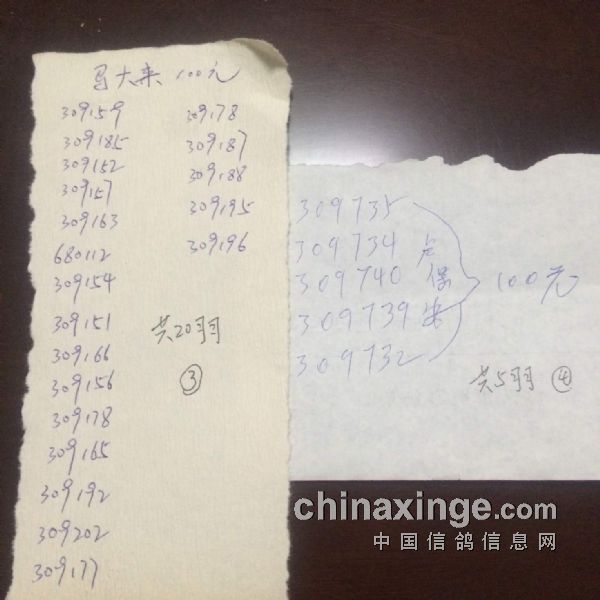 马大来 100元
309159
309185
309152
309157
309163
680112
309154
309151
309166
309156
309178
309165
309192
309202
309177
309178
309187
309188
309195
309196
共20羽
③
309735
309734
309740
309739
309732
卢保安
100元
共5羽 ④
chinaxinge.com
中国信鸽信息网